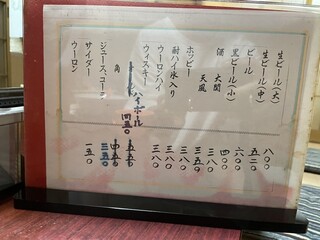 生ビール(大)
生ビール(中)
ビール
黒ビール(小)
酒 大関
天風
ホッピー
酎ハイ氷入り
ウーロンハイ
ウィスキー
角 ハイボール 四五〇
ジュース、コーラ
サイダー
ウーロン
八〇〇
五二〇
六〇〇
四〇〇
三八〇
三五〇
三八〇
三八〇
三八〇
五五〇
四五〇
三五〇
一五〇